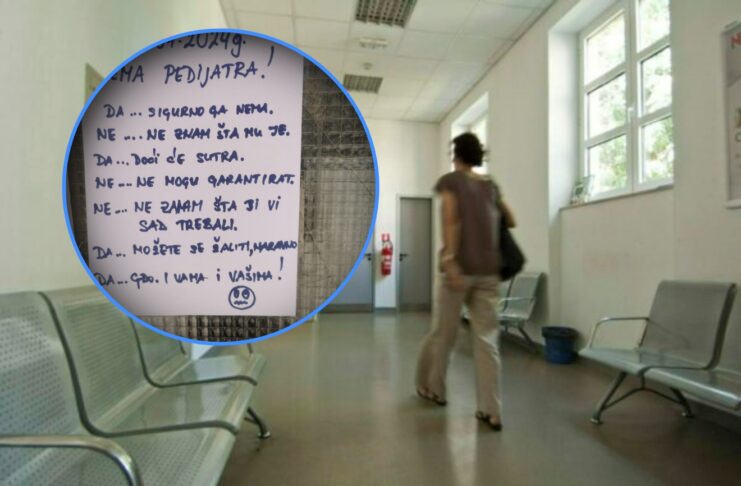 2024g.
EMA PEDIJATRA!
DA ... SIGURNO GA NEMA.
NE ... NE ZNAM ŠTA MU JE.
DA ... DOĆI ĆE SUTRA.
NE ... NE MOGU GARANTIRAT.
NE ... NE ZNAM ŠTA BI VI
SAD TREBALI.
DA ... MOŽETE SE ŽALITI, NARAVNO
DA ... GDO. I VAMA I VAŠIMA!